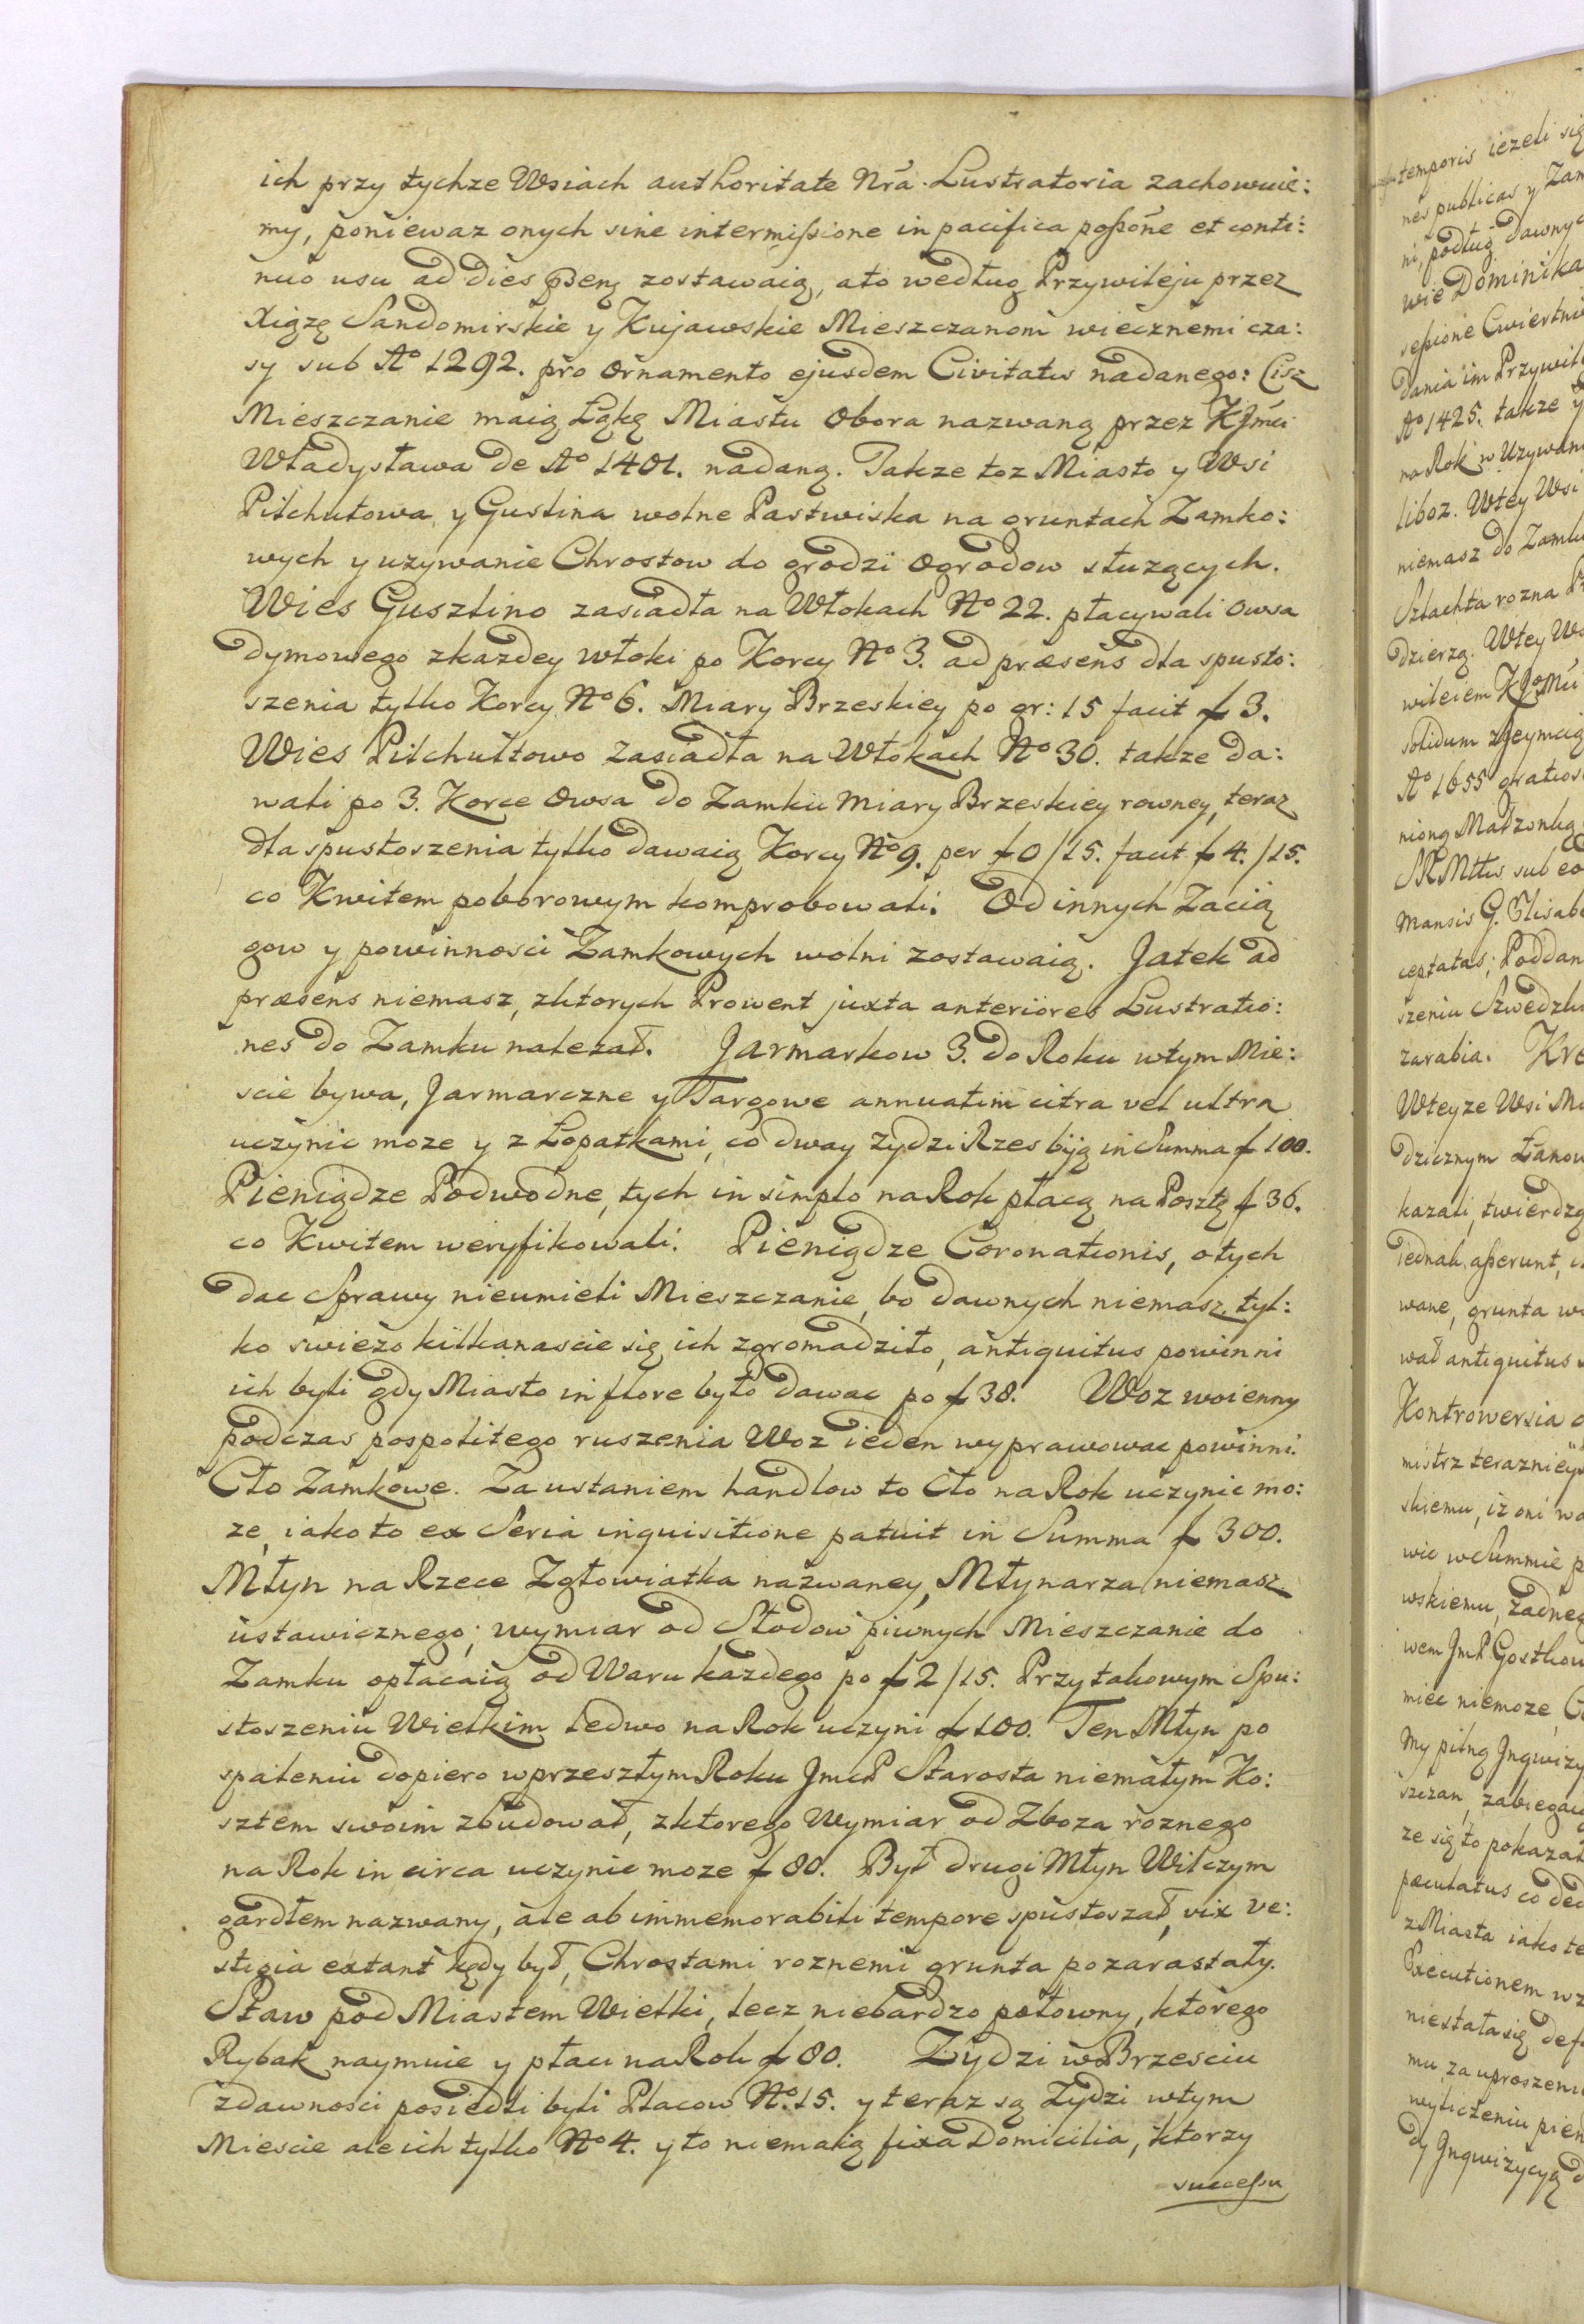 ich przy tychze Wsiach authoritate Nrã Lustratoria zachowuie:
my, poniewaz onych sine intermißione in pacifica poßone et conti:
nuo usu ad dies zostawaią, ato według Przywileju przez
Xiązę Sandomirskie y Kujawskie Mieszczanom wiecznemi cza:
sy sub Ao 1292. pro ornamento ejusdem Civitatis nadanego: Cisz
Mieszczanie maią Łąkę Miastu Obora nazwaną przez KJmci
Władysława de Ao 1401. nadaną. Takze toz Miasto y Wsi
Pilchutowa y Gustina wolne Pastwiska na gruntach Zamko:
wych y uzywanie Chrostow do grodzi Ogrodow słuzących.
Wies Gusztino zasiadła na Włokach No 22. płacywali Owsa
dymowego zkazdey włoki po Korcy No 3. ad præsens dla spusto:
szenia tylko Korcy No 6. Miary Brzeskiey po gr: 15 facit f 3.
Wies Pilchułtowo zasiadła na Włokach No 30. takze da:
wali po 3. Korce Owsa do Zamku miary Brzeskiey rowney, teraz
dla spustoszenia tylko dawaią Korcy No 9. per f 0/15. facit f 4./15.
co Kwitem poborowym komprobowali. Od innych Zacią
gow y powinnosci Zamkowych wolni zostawaią. Jatek ad
præsens niemasz, zktorych Prowent juxta anteriores Lustratio:
nes do Zamku nalezał. Jarmarkow 3. do Roku wtym Mie:
scie bywa, Jarmarczne y Targowe annuatim citra vel ultra
uczynic moze y z Łopatkami, co dway Zydzi Rzes biją in Summa f 100.
Pieniądze Podwodne, tych in simplo na Rok płacą na Posztę f 36.
co Kwitem weryfikowali. Pieniądze Coronationis, otych
dac Sprawy nieumieli Mieszczanie, bo dawnych niemasz, tyl:
ko swiezo kilkanascie się ich zgromadziło, antiquitus powinni
ich byli gdy Miasto in flore było dawac po f 38. Woz woienny
podczas pospolitego ruszenia Woz ieden wyprawowac powinni.
Cło Zamkowe. Za ustaniem handlow to Cło na Rok uczynic mo:
ze, iako to ex Seria inquisitione patuit in Summa f 300.
Młyn na Rzece Zgłowiatka nazwaney, Młynarza niemasz
ustawicznego; wymiar od Słodow piwnych Mieszczanie do
Zamku opłacaią od Waru kazdego po f 2/15. Przy takowym Spu:
stoszeniu Wielkim ledwo na Rok uczyni f 100. Ten Młyn po
spaleniu dopiero wprzeszłym Roku JmcP Starosta niemałym Ko:
sztem swoim zbudował, zktorego Wymiar od Zboza roznego
na Rok in circa uczynic moze f 80. Był drugi Młyn Wilczym
gardłem nazwany, ale ab immemorabili tempore spustoszał, vix ve:
stigia extant kędy był, Chrostami roznemi grunta pozarastały.
Staw pod Miastem Wielki, lecz niebardzo połowny, ktorego
Rybak naymuie y płaci na Rok f 80. Zydzi w Brzesciu
zdawnosci posiedli byli Placow No 15. y teraz są Zydzi wtym
Miescie ale ich tylko No 4. y to niemaią fixa Domicilia, ktorzy
succeßu
temporis iezeli się
nes publicas y Zam
ni, podług dawnyc
wie Dominika
seßione Cwiertni
dania im Przywil
Ao 1425. takze y
na Rok w Uzywani
liboz. Wtey Wsi
niemasz do Zamku
Szlachta rozna
dzierzą. Wtey Ws
wileiem
solidum
Ao 1655
nioną Małzonką
sub eo
mansis G. Elisab
ceptatas; Poddan
szeniu Szwedzk
zarabia. Kre
Wteyze Wsi
dzicznym Łanow
kazali, twierdzą
iednak aßerunt,
wane, grunta w
wał antiquitus
Kontrowersia
mistrz terazniey
skiemu, iz oni
wic wSummie p
wskiemu, zadneg
wem JmP Gostkow
miec niemoze,
my pilną Jnqwizy
szczan, zabiegai
ze się to pokazał
peculatus co
z Miasta iako te
Executionem
niestała się def
mu za uproszeni
wyliczeniu pien
dy Jnqwizycyą